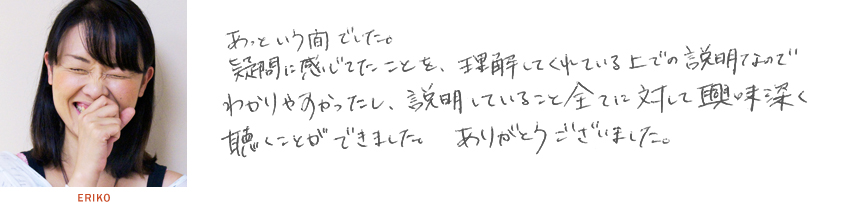 あっという間でした。
疑問に感じてたことを、理解してくれている上での説明なので
わかりやすかったし、説明していること全てに対して興味深く
聴くことができました。 ありがとうございました。
ERIKO